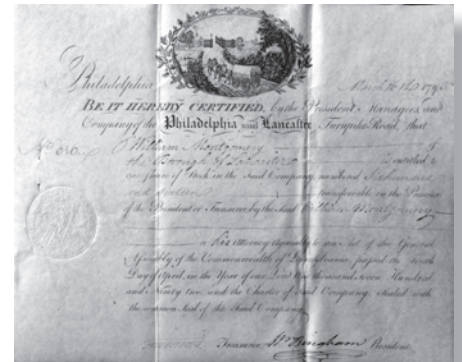 Philadelphia March 16th 1795
BE IT HEREBY CERTIFIED, by the President Managers and
Company of the Philadelphia and Lancaster Turnpike Road, that
William Montgomery of
the Borough of Lancaster is entitled to
one share of Stock in the Said Company, numbered Six hundred
and sixteen transferable in the Presence
of the President or Treasurer by the Said William Montgomery
or his Attorney agreeably to an Act of the General
Assembly of the Commonwealth of Pennsylvania, passed the Ninth
Day of April, in the Year of our Lord One thousand Seven Hundred
and Ninety two and the Charter of Said Company, Sealed with
the common Seal of the Said Company
Treasurer Wm Bingham President